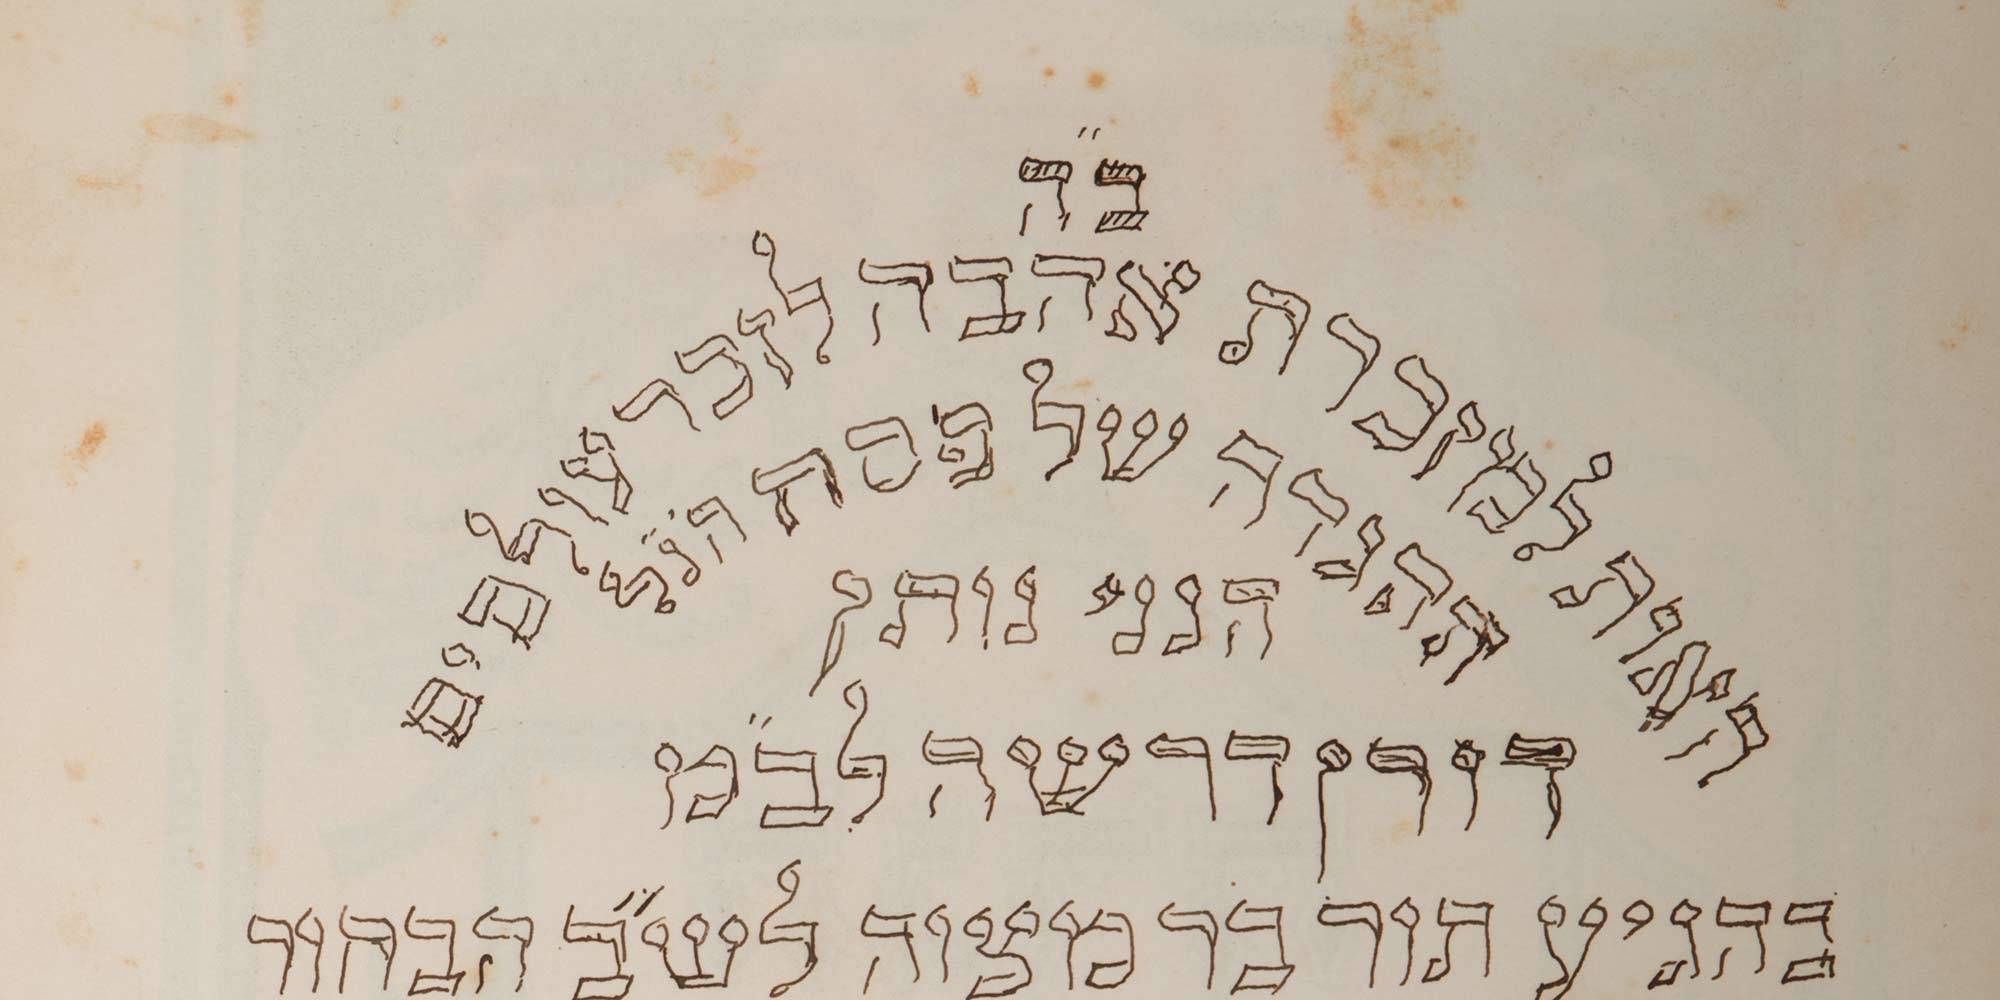 ב״ה
האות למזכרת אהבה לזכר עולמים
ההגדה של פסח הנ״ל
הנני נותן
דורן דרשה לב״מ
בהגיע תור בר מצוה לש״ב הבחור